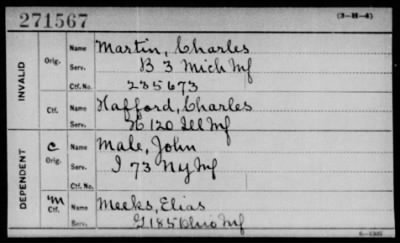 271567 (3-H-4)
INVALID
Orig. Name Martin, Charles
Serv. B 3 Mich Inf
Ctf. No. 235673
Ctf. Name Hafford, Charles
Serv. H 120 Ill Inf
DEPENDENT
C Orig. Name Male, John
Serv. I 73 Ny Inf
Ctf. No.
M Ctf. Name Meeks, Elias
Serv. G 185 Ohio Inf